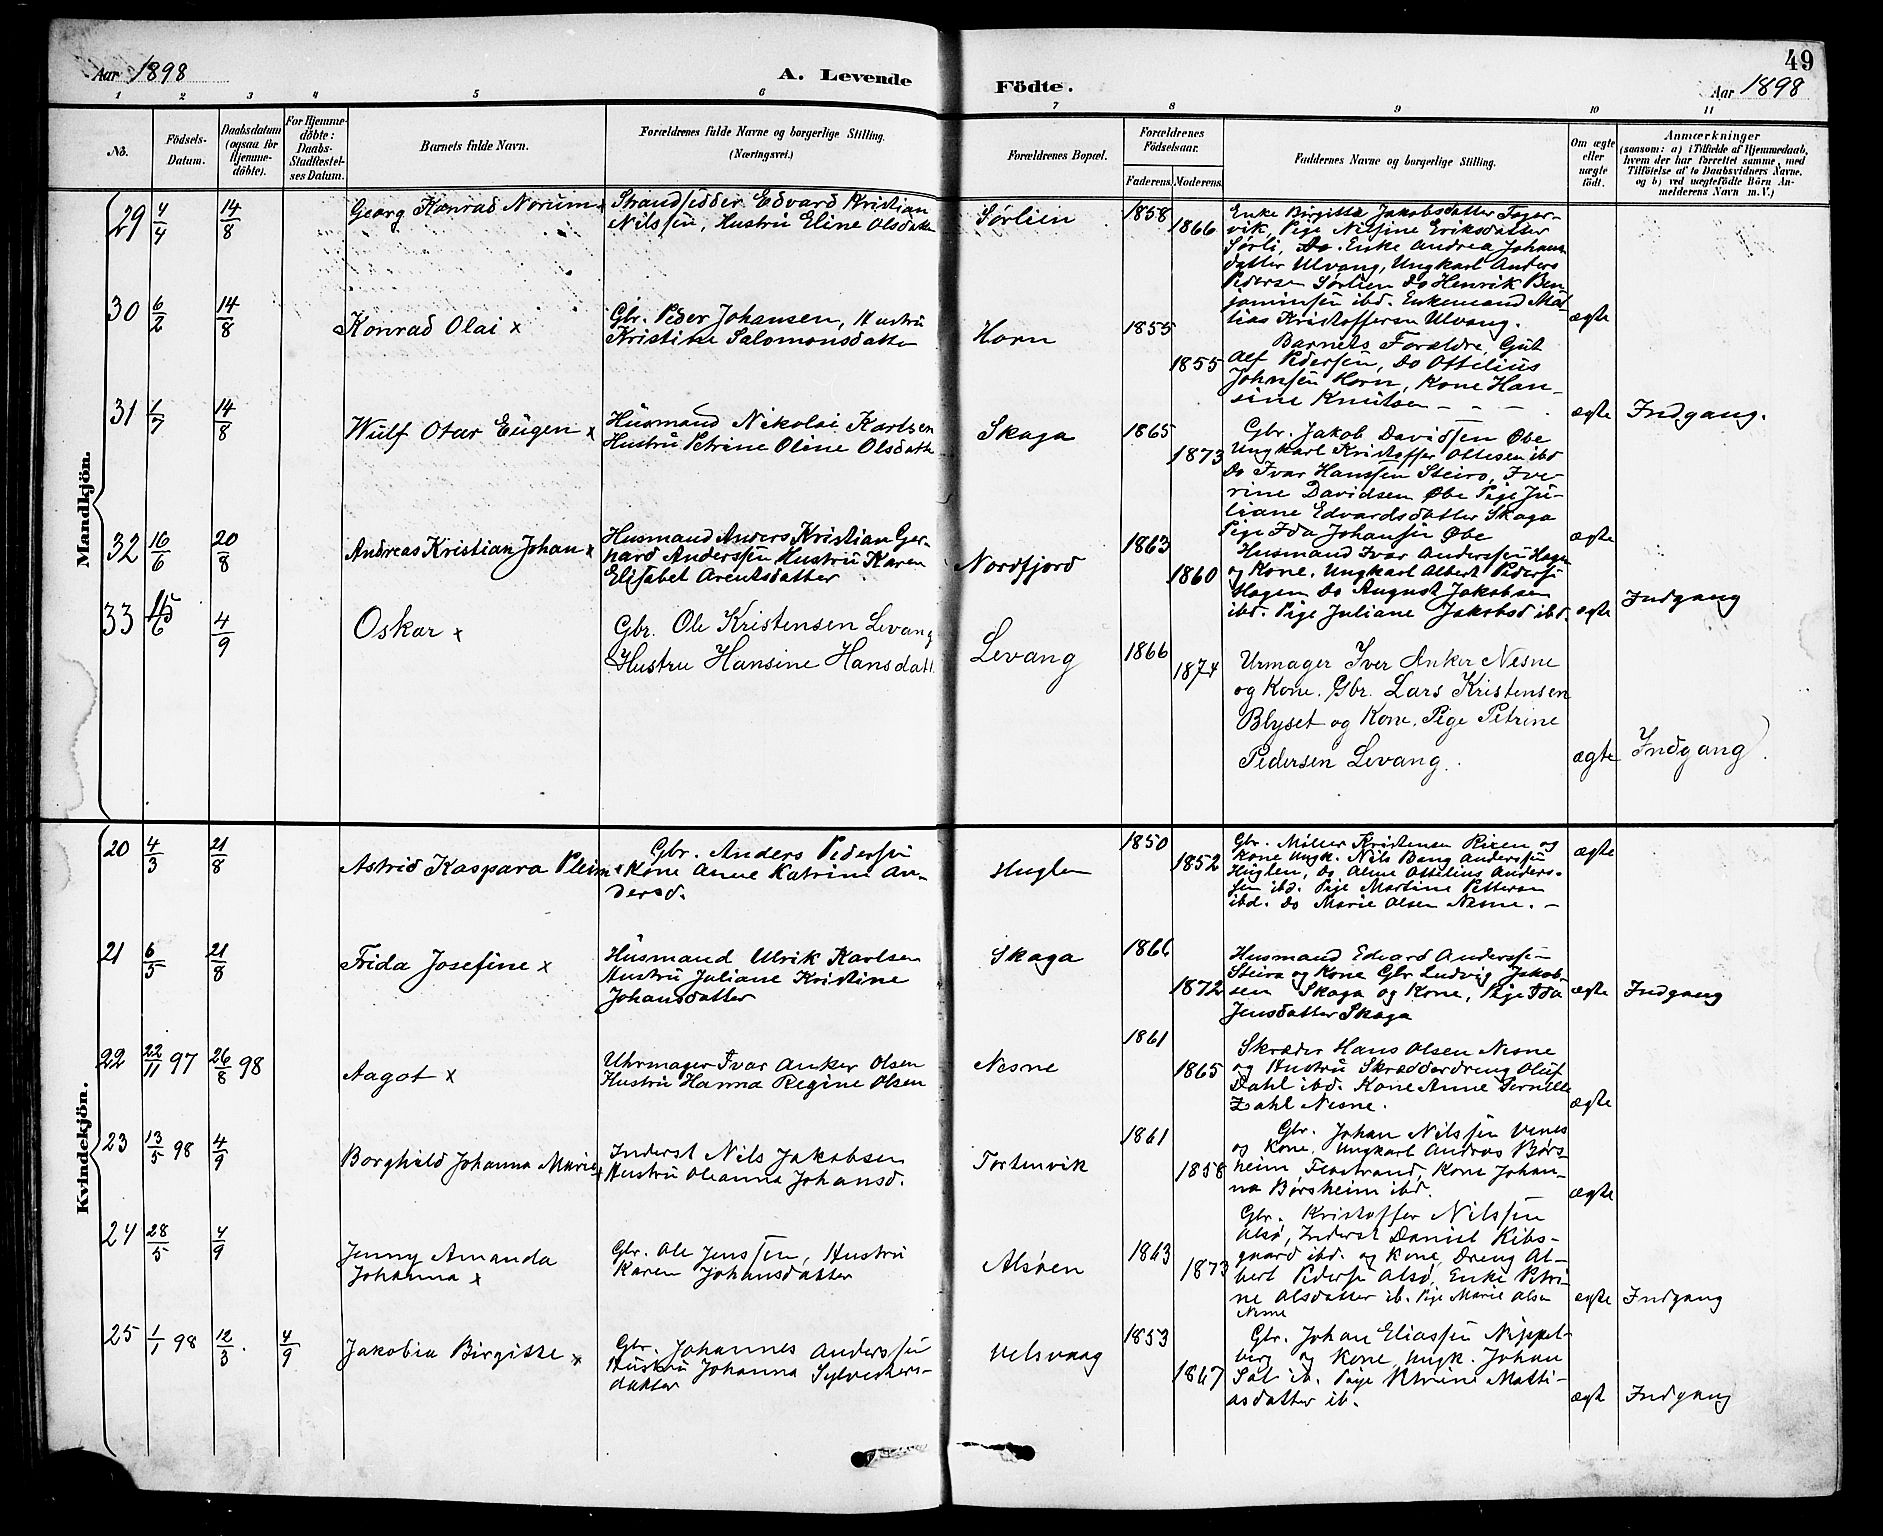 49
Aar 1898
A. Levende Födte.
Aar 1898
1 2 3 4 5 6 7 8 9 10 11
No.
Födsels-
Datum.
Daabsdatum
(ogsaa for
Hjemme-
döbte).
For Hjemme-
döbte:
Daabs-
Stadfæstel-
ses Datum.
Barnets fulde Navn.
Forældrenes fulde Navne og borgerlige Stilling.
(Næringsvei.)
Forældrenes Bopæl.
Forældrenes
Födselsaar.
Faderens.
Moderens.
Faddernes Navne og borgerlige Stilling.
Om ægte
eller
uægte
födt.
Anmærkninger
(saasom: a) i Tilfælde af Hjemmedaab,
hvem der har forrettet samme, med
Tilföielse af to Daabsvidners Navne,
og b) ved uægtefödte Börn An-
melderens Navn m. V.)
Mandkjön.
29 4/4 14/8
Georg Konrad Norum x
Strandsidder Edvard Kristian
Nilssen, Hustru Eline Olsdatter
Sørlien
1858
1866
Enke Birgitte Jakobsdatter Tager-
vik, Pige Nilsine Eriksdatter
Sørli, Do. Enke Andrea Johans
datter Ulvang, Ungkarl Anders
Pedersen Sørlien Do Henrik Ben
jaminsen ibd. Enkemand Mat
tias Kristoffersen Ulvang.
ægte
30 6/2 14/8
Konrad Olai x
Gbr. Peder Johansen, Hustru
Kristine Salomonsdatter
Horn
1855
1855
Barnets Forældre, Gut
Alf Pedersen, Do Ottelius
Johnsen Horn, Kone Han-
sine Knutsen - - - .
ægte
Indgang.
31 1/7 14/8
Wulf Otar Eugen x
Husmand Nikolai Karlsen
Hustru Petrine Oline Olsdatte
Skaga
1865
1873
Gbr. Jakob Davidsen Øbe
Ungkarl Kristoffer Ottesen ibd
Do Ivar Hanssen Steiro, Ive-
rine Davidsen Øbe Pige Ju-
liane Edvardsdatter Skaga
Pige Ida Johansen Øbe
ægte
32 16/6 20/8
Andreas Kristian Johan x
Husmand Anders Kristian Ger-
hard Anderssen Hustru Karen
Elisabet Arentsdatter
Nordfjord
1863
1860
Husmand Ivar Anderssen Hagen
og Kone. Ungkarl Albert Peders
Hagen Do August Jakobsen
ibd. Pige Juliane Jakobsd ibd.
ægte
Indgang
33 15/6 4/9
Oskar x
Gbr. Ole Kristensen Levang
Hustru Hansine Hansdatt
Levang
1866
1874
Urmager Iver Anker Nesne
og Kone. Gbr. Lars Kristensen
Blyset og Kone, Pige Petrine
Pedersen Levang.
ægte
Indgang.
Kvindekjön.
20 4/3 21/8
Astrid Kaspara Pleim x
Gbr. Anders Pedersen
Kone Anne Katrine An-
dersd.
Huglen
1850
1852
Gbr. Møller Kristensen og
Kone Ungk. Nils Bang Anderssen
Huglen, Do Ottilius Anders-
sen ibd. Pige Martine Petterson
ibd. Do Marie Olsen Nesne. -
ægte
21 6/5 21/8
Frida Josefine x
Husmand Ulrik Karlsen
Hustru Juliane Kristine
Johansdatter
Skaga
1866
1872
Husmand Edvard Anderssen
Steira og Kone Gbr Ludvig Jakob-
sen Skaga og Kone, Pige Ida
Jensdatter Skaga
ægte
Indgang
22 22/11 97 26/8 98
Aagot x
Uhrmager Ivar Anker Olsen
Hustru Hanna Regine Olsen
Nesne
1861
1865
Skræder Hans Olsen Nesne
og Hustru Skrædderdreng Oluf
Dahl ibd. Kone Anne Pernille
Zahl Nesne.
ægte
23 13/5 98 4/9
Borghild Johanna Marie x
Inderst Nils Jakobsen
Hustru Oleanna Johansd.
Tortenvik
1861
1858
Gbr. Johan Nilssen Venes
og Kone. Ungkarl Andras Børs-
heim Flostrand, Kone Johan-
na Børsheim ibd.
ægte
24 28/5 4/9
Jenny Amanda
Johanna x
Gbr. Ole Jenssen, Hustru
Karen Johansdatter
Alsøen
1863
1873
Gbr. Kristoffer Nilssen
Alsø, Inderst Daniel Ribs-
gaard ibd. og Kone, Dreng Al-
bert Peders Alsø, Enke Petri-
ne Alsdatter ib. Pige Marie Olsen
Nesne
ægte
Indgang
25 1/1 98 12/3. 4/9
Jakobia Birgitte x
Gbr. Johannes Anderssen
Hustru Johanna Sylvesters-
datter
Uelsvaag
1853
1867
Gbr. Johan Eliassen Nippel-
berg og Kone, Ungk. Johan
ib. Pige Petrine Matti-
asdatter ib.
ægte
Indgang